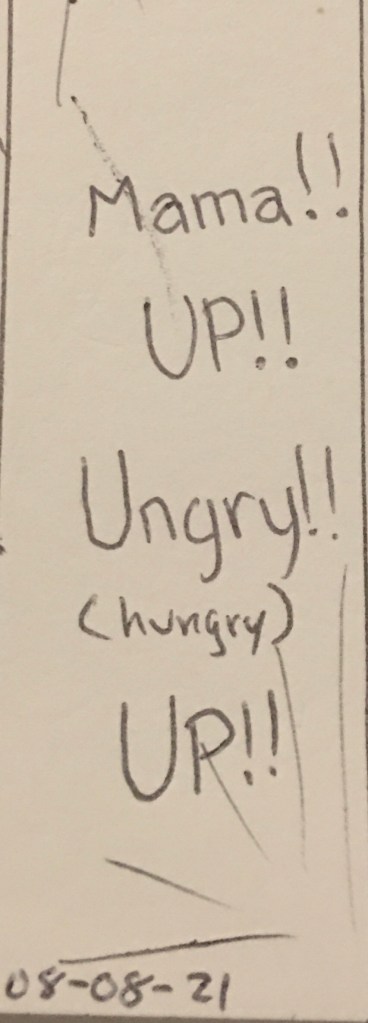 Mama!!
UP!!
Ungry!!
(hungry)
UP!!
08-08-21